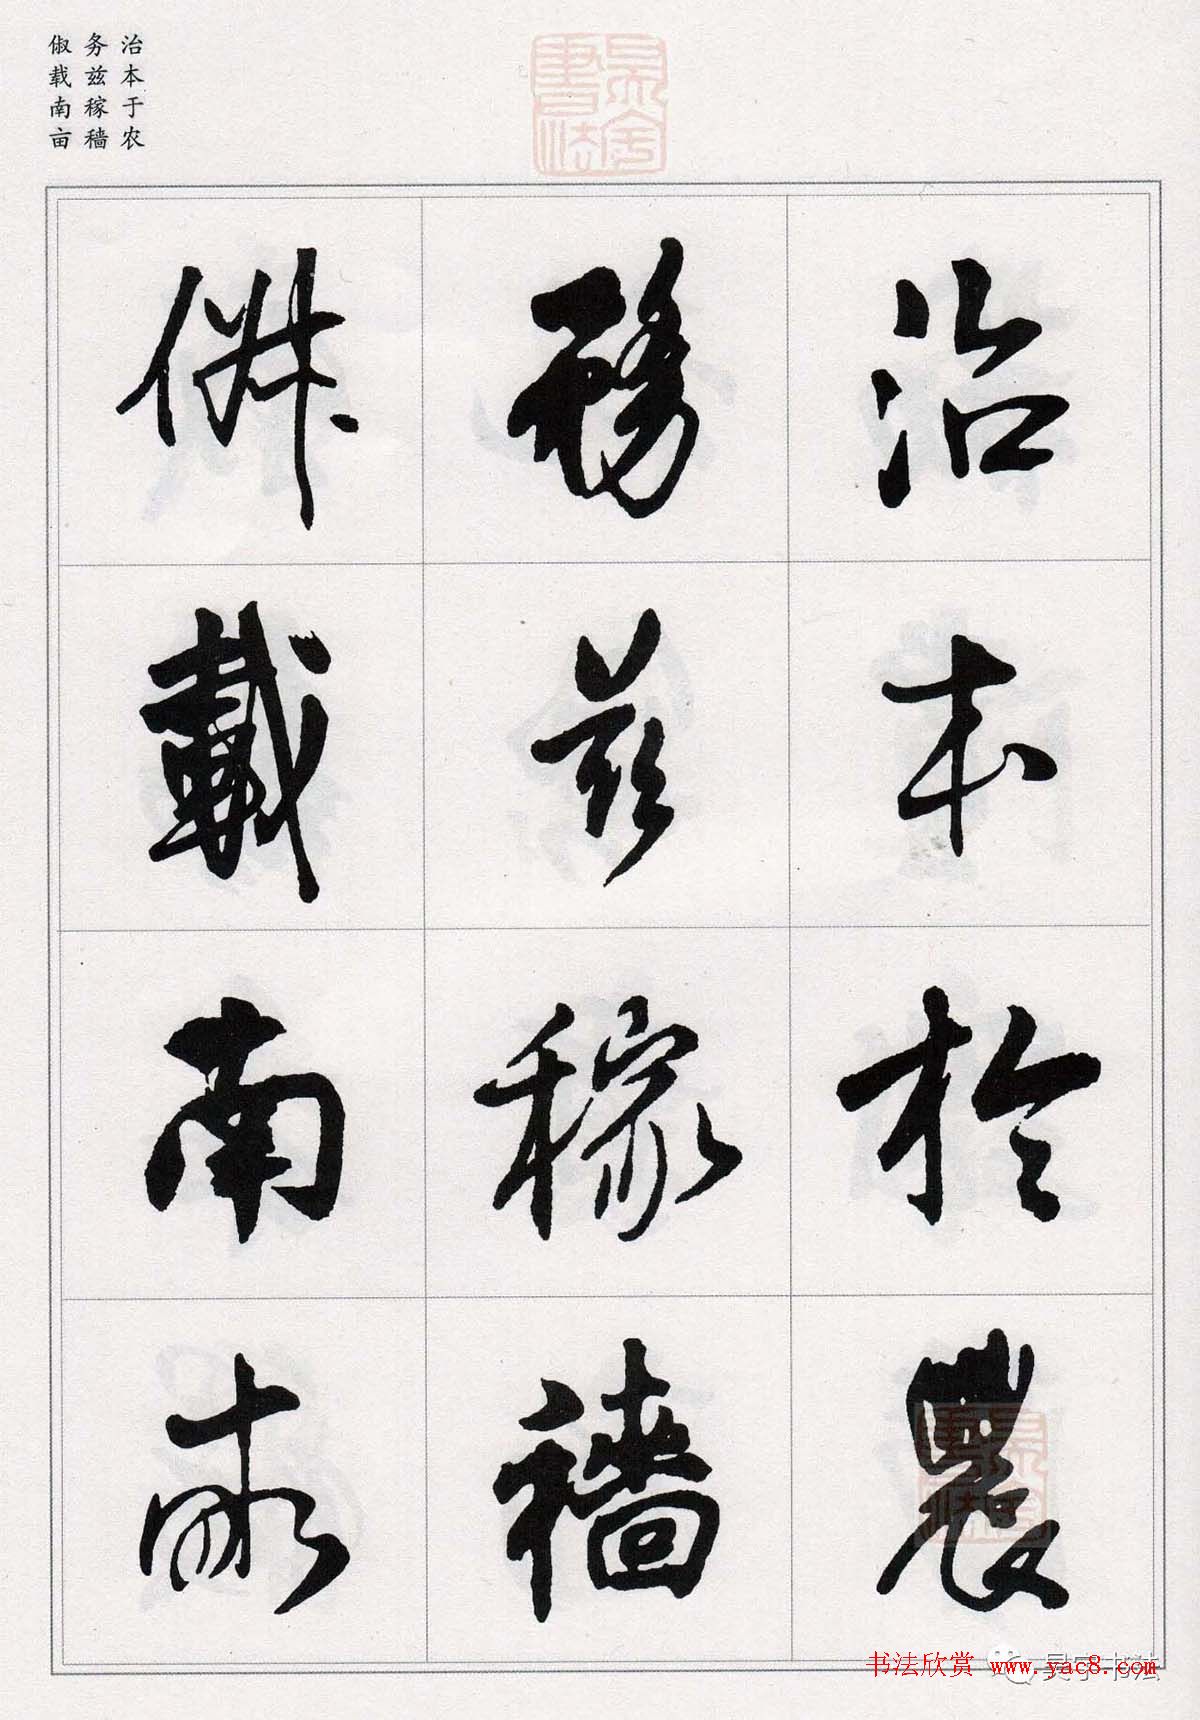 治本于农
务兹稼穑
俶载南亩
治本於農
務茲稼穡
俶載南畝
书法欣赏 www.yac8.com
昊宇书法